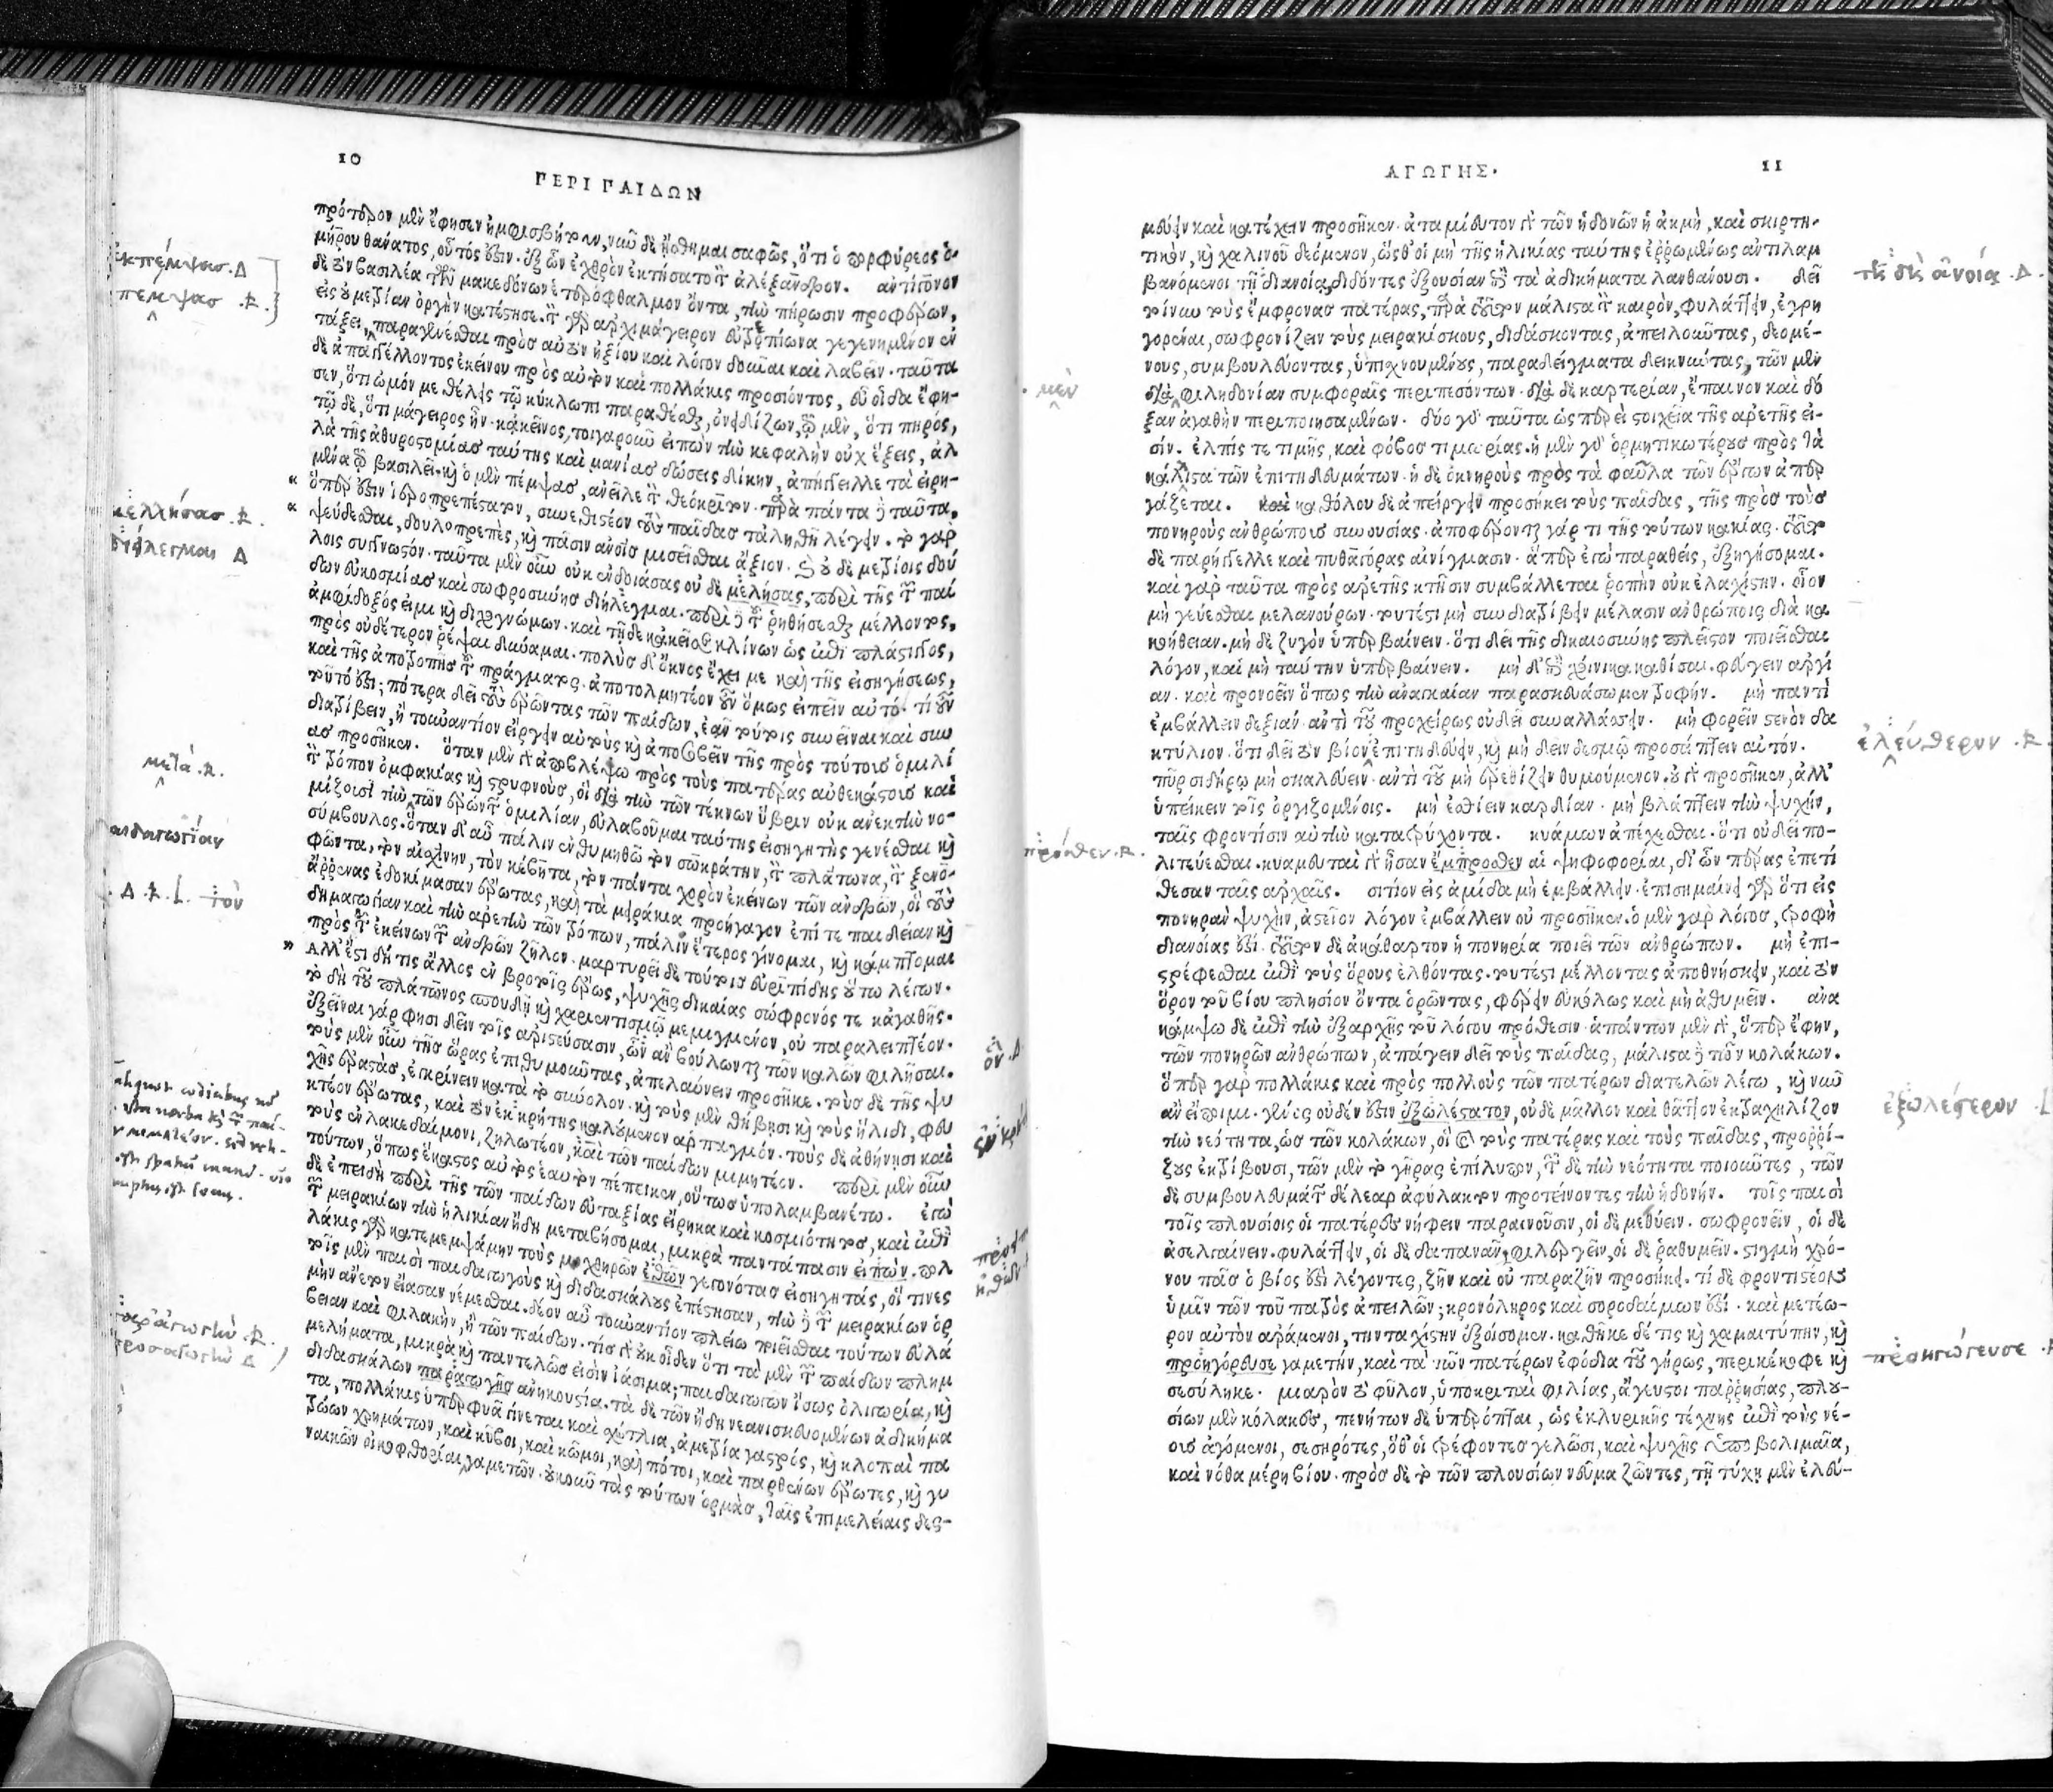 10
ΠΕΡΙ ΠΑΙΔΩΝ
πρότερον μὲν ἔφησεν ἠμφισβήτουν, νῦν δὲ ᾔσθημαι σαφῶς, ὅτι ὁ πορφύρεος ὁ-
μήρου θάνατος, οὗτός ἐστιν. ἐξ ὧν ἐχθρὸν ἐκτήσατο τὸν ἀλέξανδρον. ἀντίγονον
δὲ τὸν βασιλέα τῶν μακεδόνων ἑτερόφθαλμον ὄντα, τὴν πήρωσιν προφέρων,
εἰς οὐ μετρίαν ὀργὴν κατέστησε. τὸν γὰρ ἀρχιμάγειρον εὐτροπίωνα γεγενημένον ἐν
τάξει, παραγενέσθαι πρὸς αὐτὸν ἠξίου καὶ λόγον δοῦναι καὶ λαβεῖν. ταῦτα
δὲ ἀπαγγέλλοντος ἐκείνου πρὸς αὐτὸν καὶ πολλάκις προσιόντος, εὖ οἶδα ἔφη-
σεν, ὅτι ὠμόν με θέλεις τῷ κύκλωπι παραθέσθαι, ὀνειδίζων, τὸν μὲν, ὅτι πηρός,
τῷ δὲ, ὅτι μάγειρος ἦν. κἀκεῖνος, τοιγαροῦν εἰπὼν τὴν κεφαλὴν οὐχ ἕξεις, ἀλ
λὰ τῆς ἀθυροστομίας ταύτης καὶ μανίας δώσεις δίκην, ἀπήγγειλλε τὰ εἰρη-
μένα τῷ βασιλεῖ. καὶ ὁ μὲν πέμψας, ἀνεῖλε τὸν θεόκριτον. παρὰ πάντα δὲ ταῦτα,
ὅπερ ἐστὶν ἱεροπρεπέστατον, συνεθιστέον τοὺς παῖδας τἀληθῆ λέγειν. τὸ γὰρ
ψεύδεσθαι, δουλοπρεπὲς, καὶ πᾶσιν ἀνθρώποις μισεῖσθαι ἄξιον. καὶ οὐδὲ μετρίοις δού
λοις συγγνωστόν. ταῦτα μὲν οὖν οὐκ ἐνδοιάσας οὐδὲ μελήσας, περὶ τῆς τῶν παί
δων εὐκοσμίας καὶ σωφροσύνης διήλεγμαι. περὶ δὲ τοῦ ῥηθήσεσθαι μέλλοντος,
ἀμφίδοξός εἰμι καὶ διχογνώμων. καὶ τῇδε κἀκεῖσε κλίνων ὡς ἐπὶ πλάστιγγος,
πρὸς οὐδέτερον ῥέψαι δύναμαι. πολὺς δ' ὄκνος ἔχει με καὶ τῆς εἰσηγήσεως,
καὶ τῆς ἀποτροπῆς τοῦ πράγματος. ἀποτολμητέον οὖν ὅμως εἰπεῖν αὐτό. τί οὖν
τοῦτό ἐστι; πότερα δεῖ τοὺς ἐρῶντας τῶν παίδων, ἐᾶν τούτοις συνεῖναι καὶ συν
διατρίβειν, ἢ τοὐναντίον εἴργειν αὐτοὺς καὶ ἀποσοβεῖν τῆς πρὸς τούτους ὁμιλί
ας προσῆκεν. ὅταν μὲν γὰρ ἀποβλέψω πρὸς τοὺς πατέρας αὐθεκάστους καὶ
τὸν τρόπον ὀμφακίας καὶ στρυφνοὺς, οἳ διὰ τὴν τῶν τέκνων ὕβριν οὐκ ἀνεκτὴν νο-
μίζουσι τὴν τῶν ἐρώντων ὁμιλίαν, εὐλαβοῦμαι ταύτης εἰσηγητὴς γενέσθαι καὶ
σύμβουλος. ὅταν δ' αὖ πάλιν ἐνθυμηθῶ τὸν σωκράτην, τὸν πλάτωνα, τὸν ξενο-
φῶντα, τὸν αἰσχίνην, τὸν κέβητα, τὸν πάντα χορὸν ἐκείνων τῶν ἀνδρῶν, οἳ τοὺς
ἄῤῥενας ἐδοκίμασαν ἔρωτας, καὶ τὰ μειράκια προήγαγον ἐπί τε παιδείαν καὶ
δημαγωγίαν καὶ τὴν ἀρετὴν τῶν τρόπων, πάλιν ἕτερος γίνομαι, καὶ κάμπτομαι
πρὸς τὸν ἐκείνων τῶν ἀνδρῶν ζῆλον. μαρτυρεῖ δὲ τούτοις εὐριπίδης οὕτω λέγων.
Ἀλλ' ἔστι δή τις ἄλλος ἐν βροτοῖς ἔρως, ψυχῆς δικαίας σώφρονός τε κἀγαθῆς.
τὸ δὴ τοῦ πλάτωνος σπουδῇ καὶ χαριεντισμῷ μεμιγμένον, οὐ παραλειπτέον.
ἐξεῖναι γάρ φησι δεῖν τοῖς ἀριστεύσασιν, ὧν ἂν βούλωνται τῶν καλῶν φιλῆσαι.
τοὺς μὲν οὖν τῆς ὥρας ἐπιθυμοῦντας, ἀπελαύνειν προσῆκε. τοὺς δὲ τῆς ψυ
χῆς ἐραστὰς, ἐγκρίνειν κατὰ τὸ σύνολον. καὶ τοὺς μὲν θήβησι καὶ τοὺς ἤλιδι, φευ
κτέον ἔρωτας, καὶ τὸν ἐκκρήτης καλούμενον ἁρπαγμόν. τοὺς δὲ ἀθήνησι καὶ
τοὺς ἐν λακεδαίμονι, ζηλωτέον, καὶ τῶν παίδων μιμητέον. περὶ μὲν οὖν
τούτων, ὅπως ἕκαστος αὐτὸς ἑαυτὸν πέπεικεν, οὕτως ὑπολαμβανέτω. ἐγὼ
δὲ ἐπειδὴ περὶ τῆς τῶν παίδων εὐταξίας εἴρηκα καὶ κοσμιότητος, καὶ ἐπὶ
τὴν μειρακίων τὴν ἡλικίαν ἤδη μεταβήσομαι, μικρὰ παντάπασιν εἰπών. πολ
λάκις γὰρ κατεμεμψάμην τοὺς μοχθηρῶν ἐθῶν γεγονότας εἰσηγητὰς, οἵ τινες
τοῖς μὲν παισὶ παιδαγωγοὺς καὶ διδασκάλους ἐπέστησαν, τὴν δὲ τῶν μειρακίων ὁρ
μὴν ἄνετον εἴασαν νέμεσθαι. δέον αὖ τοὐναντίον πλείω ποιεῖσθαι τούτων εὐλά
βειαν καὶ φυλακὴν, ἢ τῶν παίδων. τίς γὰρ οὐκ οἶδεν ὅτι τὰ μὲν τῶν παίδων πλημ
μελήματα, μικρὰ καὶ παντελῶς εἰσὶν ἰάσιμα; παιδαγωγῶν ἴσως ὀλιγωρία, καὶ
διδασκάλων παραγωγῆς ἀνηκουστία. τὰ δὲ τῶν ἤδη νεανισκευομένων ἀδικήμα
τα, πολλάκις ὑπερφυᾶ γίνεται καὶ σχέτλια, ἀμετρία γαστρός, καὶ κλοπαὶ πα
τρώων χρημάτων, καὶ κύβοι, καὶ κῶμοι, καὶ πότοι, καὶ παρθένων ἔρωτες, καὶ γυ
ναικῶν οἰκοφθορίαι γαμετῶν. οὐκοῦν τὰς τούτων ὁρμὰς, ταῖς ἐπιμελείαις δεσ-
ἐκπέμψασ. Δ
πεμψασ .R.
μελλήσας .R.
διήλεγμαι Δ
μετὰ .R.
παιδαγωγίαν
Δ.R.L. τὸν
παραγωγὴν .R.
προσαγωγὴν Δ
ΑΓΩΓΗΣ.
11
μεύειν καὶ κατέχειν προσῆκεν. ἀταμίευτον γὰρ τῶν ἡδονῶν ἡ ἀκμὴ, καὶ σκιρτη-
τικὸν, καὶ χαλινοῦ δεόμενον, ὥσθ' οἱ μὴ τῆς ἡλικίας ταύτης ἐῤῥωμένως ἀντιλαμ
βανόμενοι τῇ διανοίᾳ, διδόντες ἐξουσίαν ἐπὶ τὰ ἀδικήματα λανθάνουσι. δεῖ
τοίνυν τοὺς ἔμφρονας πατέρας, παρὰ τοῦτον μάλιστα τὸν καιρὸν, φυλάττειν, ἐγρη
γορέναι, σωφρονίζειν τοὺς μειρακίσκους, διδάσκοντας, ἀπειλοῦντας, δεομέ-
νους, συμβουλεύοντας, ὑπισχνουμένους, παραδείγματα δεικνύντας, τῶν μὲν
διὰ φιληδονίαν συμφοραῖς περιπεσόντων. διὰ δὲ καρτερίαν, ἔπαινον καὶ δό
ξαν ἀγαθὴν περιποιησαμένων. δύο γὰρ ταῦτα ὡσπερεὶ στοιχεῖα τῆς ἀρετῆς εἰ-
σίν. ἐλπίς τε τιμῆς, καὶ φόβος τιμωρίας. ἡ μὲν γὰρ ὁρμητικωτέρους πρὸς τὰ
κάλλιστα τῶν ἐπιτηδευμάτων. ἡ δὲ ὀκνηροὺς πρὸς τὰ φαῦλα τῶν ἔργων ἀπερ
γάζεται. καὶ καθόλου δὲ ἀπείργειν προσήκει τοὺς παῖδας, τῆς πρὸς τοὺς
πονηροὺς ἀνθρώπους συνουσίας. ἀποφέρονται γάρ τι τῆς τούτων κακίας. τοῦτο
δὲ παρήγγελλε καὶ πυθαγόρας αἰνίγμασιν. ἅπερ ἐγὼ παραθεὶς, ἐξηγήσομαι.
καὶ γὰρ ταῦτα πρὸς ἀρετῆς κτῆσιν συμβάλλεται ῥοπὴν οὐκ ἐλαχίστην. οἷον
μὴ γεύεσθαι μελανούρων. τουτέστι μὴ συνδιατρίβειν μέλασιν ἀνθρώποις διὰ κα
κοήθειαν. μὴ δὲ ζυγὸν ὑπερβαίνειν. ὅτι δεῖ τῆς δικαιοσύνης πλεῖστον ποιεῖσθαι
λόγον, καὶ μὴ ταύτην ὑπερβαίνειν. μὴ δ' ἐπὶ χοίνικι καθίσαι. φεύγειν ἀργί
αν. καὶ προνοεῖν ὅπως τὴν ἀναγκαίαν παρασκευάσωμεν τροφήν. μὴ παντὶ
ἐμβάλλειν δεξιάν. ἀντὶ τοῦ προχείρως οὐ δεῖ συναλλάσσειν. μὴ φορεῖν στενὸν δα
κτύλιον. ὅτι δεῖ τὸν βίον ἐπιτηδεύειν, καὶ μὴ δεῖν δεσμῷ προσάπτειν αὐτόν.
πῦρ σιδήρῳ μὴ σκαλεύειν. ἀντὶ τοῦ μὴ ἐρεθίζειν θυμούμενον. οὐ γὰρ προσῆκεν, ἀλλ'
ὑπείκειν τοῖς ὀργιζομένοις. μὴ ἐσθίειν καρδίαν. μὴ βλάπτειν τὴν ψυχὴν,
ταῖς φροντίσιν αὐτὴν κατατρύχοντα. κυάμων ἀπέχεσθαι. ὅτι οὐ δεῖ πο-
λιτεύεσθαι. κυαμευταὶ γὰρ ἦσαν ἔμπροσθεν αἱ ψηφοφορίαι, δι' ὧν πέρας ἐπετί
θεσαν ταῖς ἀρχαῖς. σιτίον εἰς ἀμίδα μὴ ἐμβάλλειν. ἐπισημαίνει γὰρ ὅτι εἰς
πονηρὰν ψυχὴν, ἀστεῖον λόγον ἐμβάλλειν οὐ προσῆκεν. ὁ μὲν γὰρ λόγος, τροφὴ
διανοίας ἐστί. τοῦτον δὲ ἀκάθαρτον ἡ πονηρία ποιεῖ τῶν ἀνθρώπων. μὴ ἐπι-
στρέφεσθαι ἐπὶ τοὺς ὅρους ἐλθόντας. τουτέστι μέλλοντας ἀποθνήσκειν, καὶ τὸν
ὅρον τοῦ βίου πλησίον ὄντα ὁρῶντας, φέρειν εὐκόλως καὶ μὴ ἀθυμεῖν. ἀνα
κάμψω δὲ ἐπὶ τὴν ἐξαρχῆς τοῦ λόγου πρόθεσιν. ἁπάντων μὲν γὰρ, ὅπερ ἔφην,
τῶν πονηρῶν ἀνθρώπων, ἀπάγειν δεῖ τοὺς παῖδας, μάλιστα δὲ τῶν κολάκων.
ὅπερ γὰρ πολλάκις καὶ πρὸς πολλοὺς τῶν πατέρων διατελῶν λέγω, καὶ νῦν
ἂν εἴποιμι. γένος οὐδέν ἐστιν ἐξωλέστατον, οὐδὲ μᾶλλον καὶ θᾶττον ἐκτραχηλίζον
τὴν νεότητα, ὡς τῶν κολάκων, οἳ καὶ τοὺς πατέρας καὶ τοὺς παῖδας, προῤῥί-
ζους ἐκτρίβουσι, τῶν μὲν τὸ γῆρας ἐπίλυπον, τῶν δὲ τὴν νεότητα ποιοῦντες, τῶν
δὲ συμβουλευμάτων δέλεαρ ἀφύλακτον προτείνοντες τὴν ἡδονήν. τοῖς παισὶ
τοῖς πλουσίοις οἱ πατέρες νήφειν παραινοῦσιν, οἱ δὲ μεθύειν. σωφρονεῖν, οἱ δὲ
ἀσελγαίνειν. φυλάττειν, οἱ δὲ δαπανᾶν, φιλεργεῖν, οἱ δὲ ῥαθυμεῖν. στιγμὴ χρό-
νου πᾶς ὁ βίος ἐστὶ λέγοντες, ζῆν καὶ οὐ παραζῆν προσῆκε. τί δὲ φροντιστέον
ὑμῖν τῶν τοῦ πατρὸς ἀπειλῶν; κρονόληρος καὶ σοροδαίμων ἐστί. καὶ μετέω-
ρον αὐτὸν ἀράμενοι, τὴν ταχίστην ἐξοίσομεν. καθῆκε δέ τις καὶ χαμαιτύπην, καὶ
προηγόρευσε γαμετήν, καὶ τὰ τῶν πατέρων ἐφόδια τοῦ γήρως, περικέκοφε καὶ
σεσύληκε. μιαρὸν τὸ φῦλον, ὑποκριταὶ φιλίας, ἄγευστοι παῤῥησίας, πλου-
σίων μὲν κόλακες, πενήτων δὲ ὑπερόπται, ὡς ἐκ λυρικῆς τέχνης ἐπὶ τοὺς νέ-
ους ἀγόμενοι, σεσηρότες, ὅθ' οἱ τρέφοντες γελῶσι, καὶ ψυχῆς ὑποβολιμαῖα,
καὶ νόθα μέρη βίου. πρὸς δὲ τὸ τῶν πλουσίων νεῦμα ζῶντες, τῇ τύχῃ μὲν ἐλεύ-
μεν
πρόσθεν .R.
τῆς ἀνοίᾳ .Δ.
ἐλεύθερον .R.
ἐξωλέστερον .L